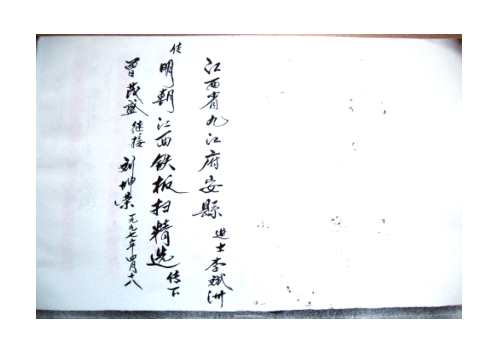 江西省九江府安縣 进士李斌洲
传 明朝江西铁板扫精选 传下
曾茂盛 继接 刘坤荣 一九九七年四月十八